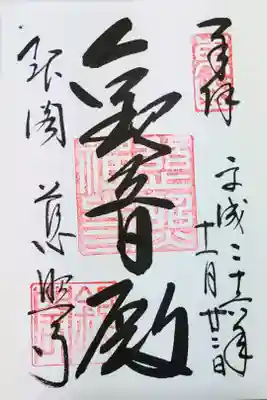 奉拝
平成二十六年
十一月廿二日
観音殿
銀閣 慈照寺